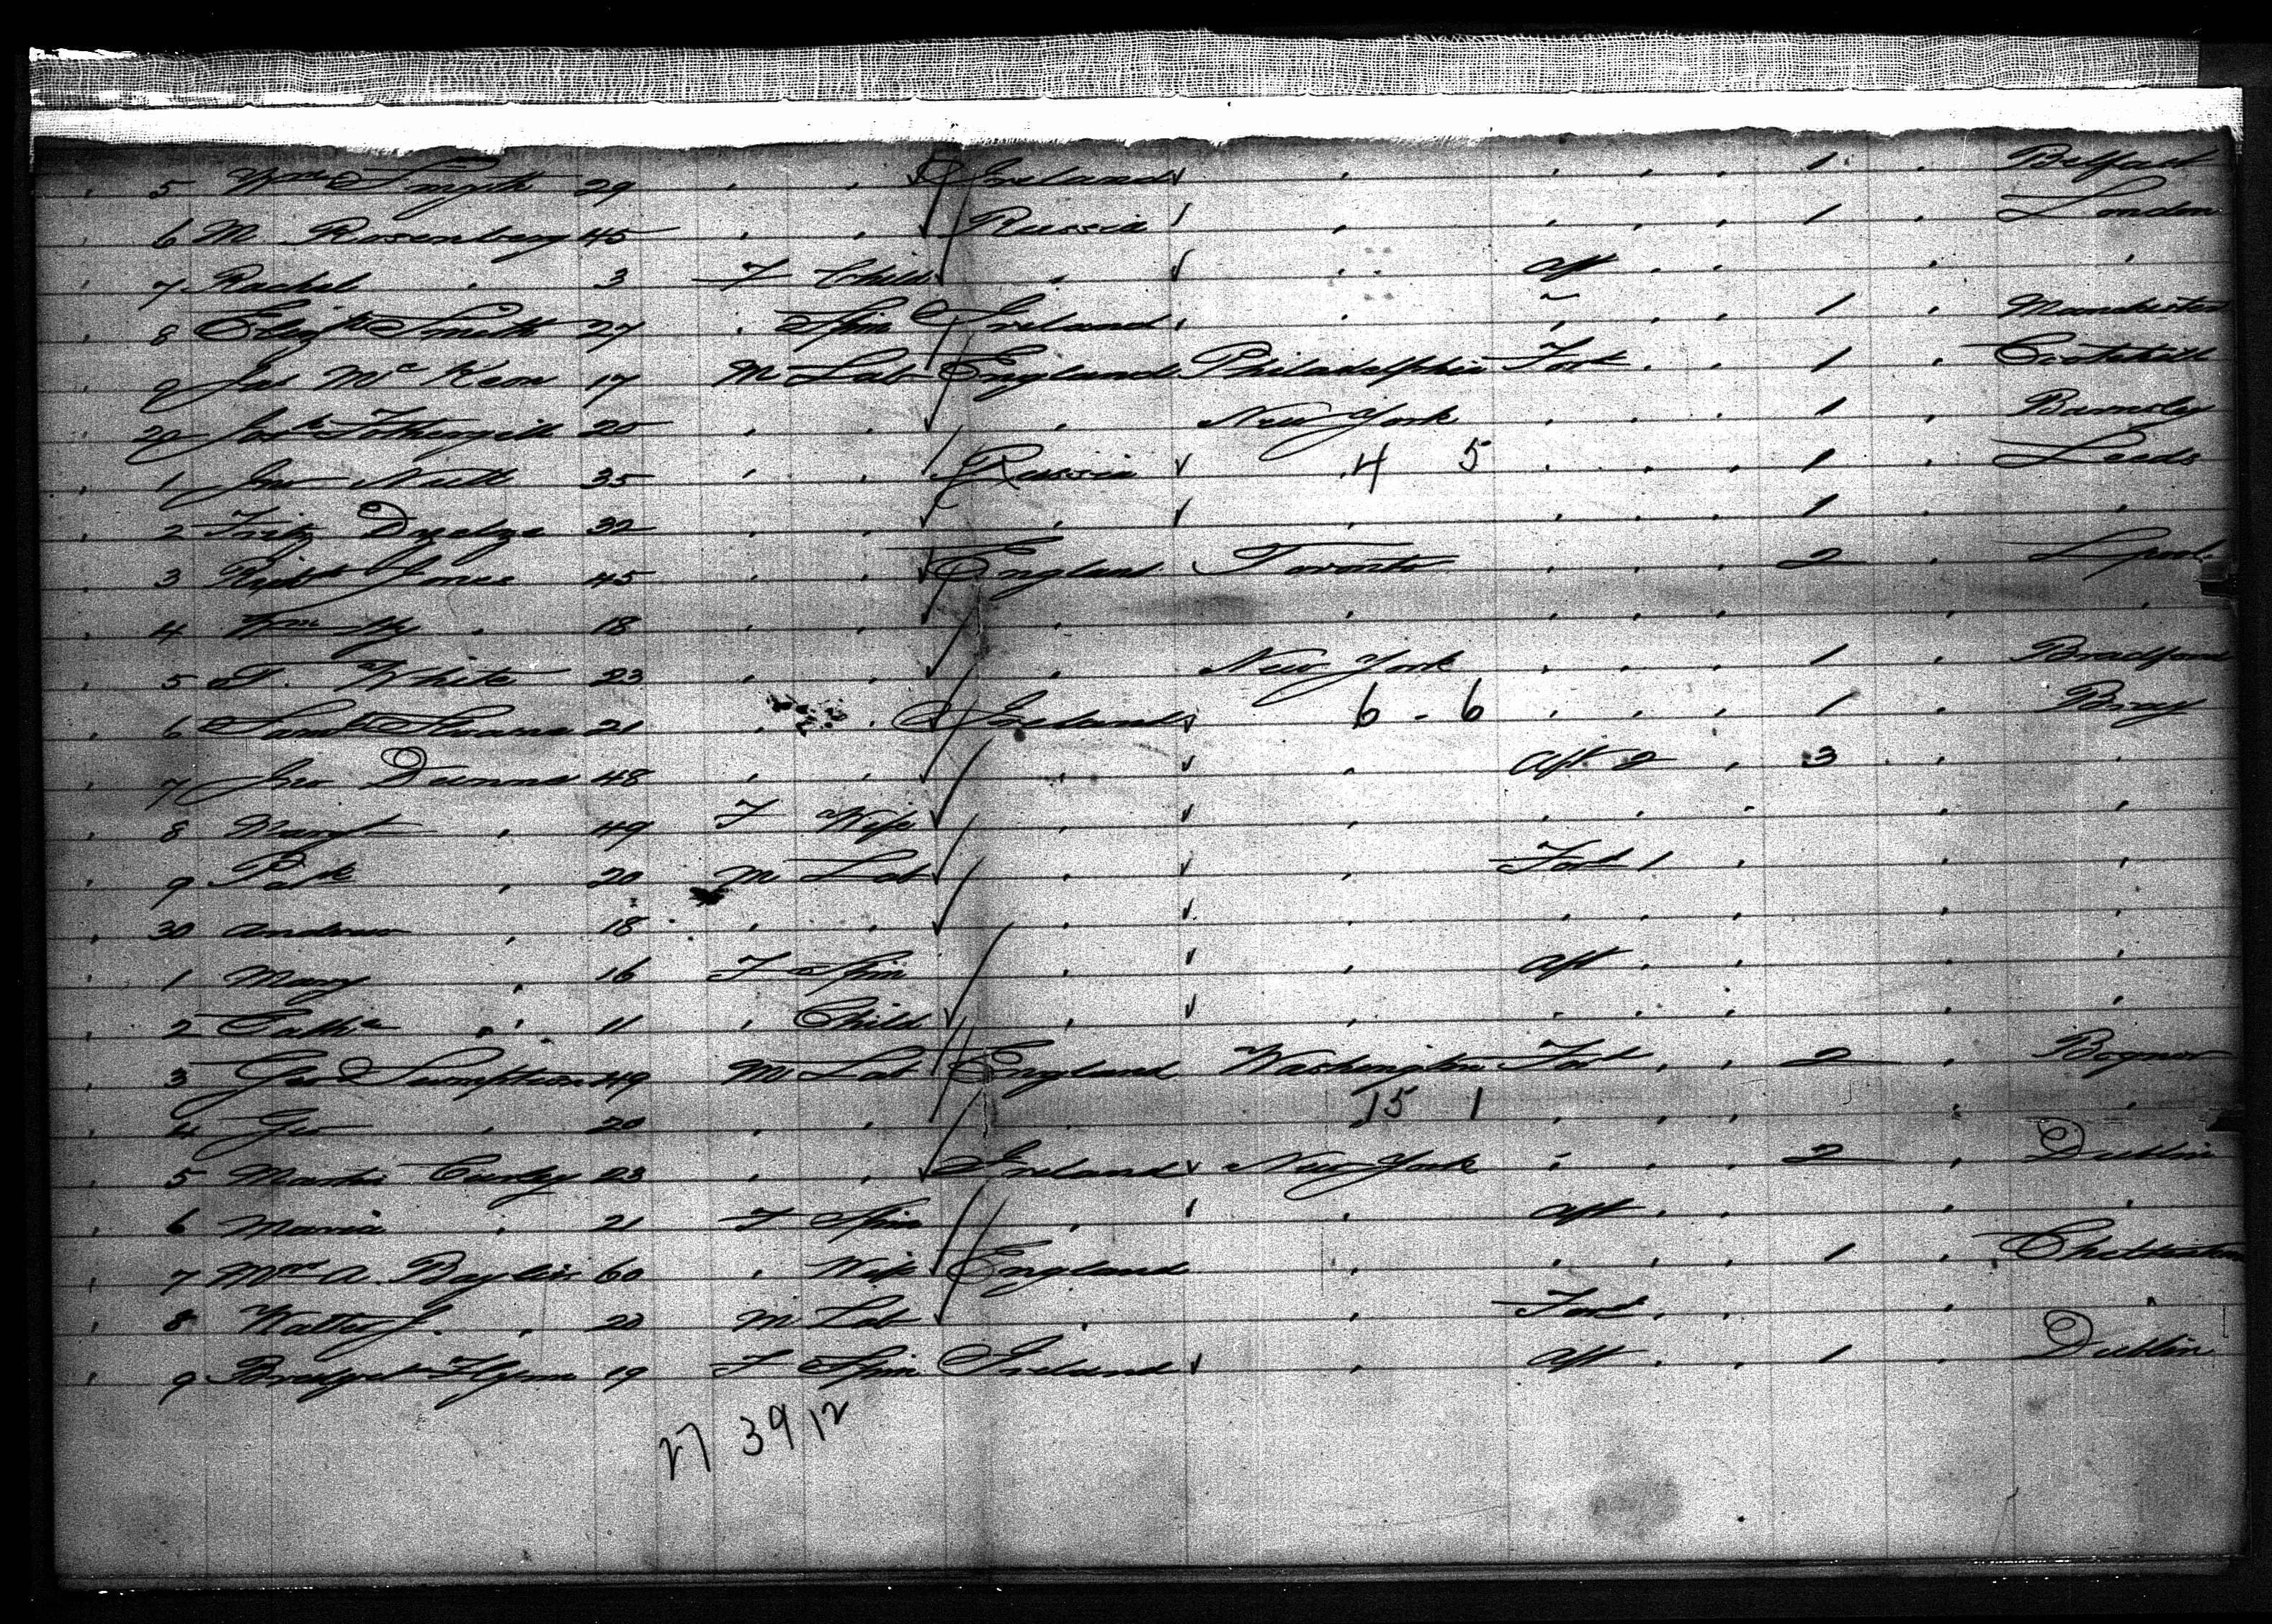 5 Wm Smyth 29 " " Ireland " " " " 1 " Belfast
6 M Rosenberg 45 " " Russia " " " " 1 " London
7 Rachel " 3 F Child " " aft " " " "
8 Eliz'th Smith 27 " Spin Ireland " " " " 1 " Manchester
9 Jas Mc Keon 17 M Lab England Philadelphia For'd " " 1 " Cootehill
20 Jos'h Fothergill 25 " " " New York " " " 1 " Barnsley
1 Jno 35 " " Russia 4 5 " " " 1 " Leeds
2 Fritz 32 " " " " " " " 1 " "
3 Rich'd Jones 45 " " England Toronto " " " 2 " Lpool
4 Wm Hy " 18 " " " " " " " " "
5 T. White 23 " " " New York " " " 1 " Bradford
6 Saml 21 " " Ireland 6 - 6 " " " 1 " Bray
7 Jno Dunne 48 " " " " aft 2 " 3 " "
8 Margt " 49 F Wife " " " " " " "
9 Patk " 20 M Lab " " For'd 1 " " "
30 Andrew " 18 " " " " " " " " "
1 Mary " 16 F Spin " " aft " " " "
2 Cath'e " 11 " Child " " " " " " "
3 Geo Sumption 49 M Lab England Washington For'd " " 2 " Bognor
4 Geo " 20 " " " 15 1 " " " " "
5 Martin Curley 23 " " Ireland New York " " " 2 " Dublin
6 Maria " 21 F Spin " " aft " " " "
7 Mrs A. Baylis 60 " Wife England " " " " 1 " Cheltenham
8 Walter J. " 20 M Lab " " For'd " " " "
9 Bridget Flynn 19 F Spin Ireland " aft " " 1 " Dublin
27 39 12